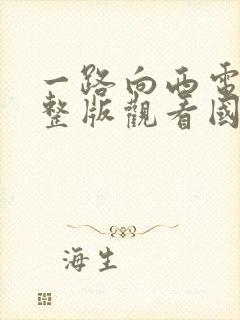 一路向西電
整版觀看國
海生